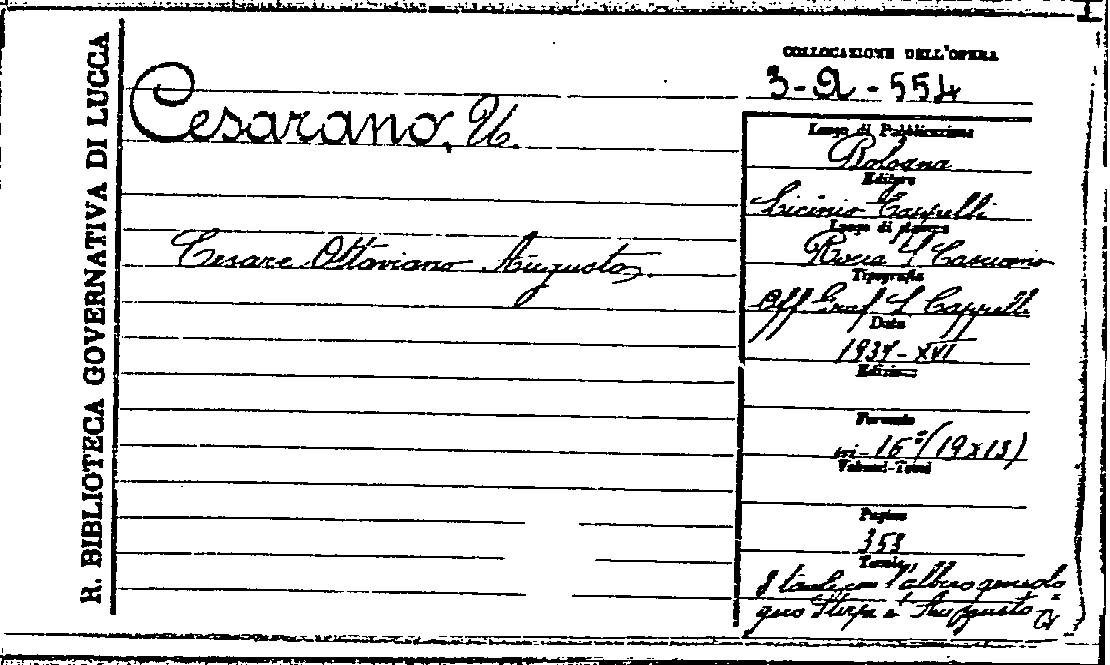 R. BIBLIOTECA GOVERNATIVA DI LUCCA
Cesarano, U.
Cesare Ottaviano Augusto.
COLLOCAZIONE DELL'OPERA
3-Q-554
Luogo di Pubblicazione
Bologna
Editore
Licinio Cappelli
Luogo di stampa
Rocca S. Casciano
Tipografia
Off Graf L Cappelli
Data
1937-XVI
Edizione
Formato
in-16°(19x13)
Volumi-Tomi
Pagine
353
Tavole
tavole con l'albero genealo
gico